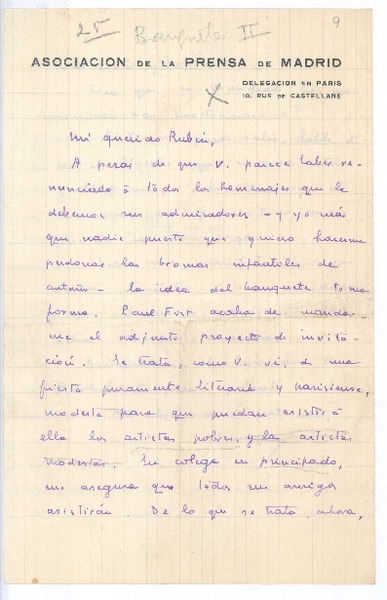 25 Banquete II 9
ASOCIACION DE LA PRENSA DE MADRID
DELEGACION EN PARIS
10, RUE DE CASTELLANE
Mi querido Rubén,
A pesar de que V. parece haber re-
nunciado á todos los homenajes que le
debemos sus admiradores - y yo más
que nadie puesto que quiero hacerme
perdonar las bromas infantiles de
antaño - la idea del banquete toma
forma. Paul Fort acaba de mandar-
me el adjunto proyecto de invita-
ción. Se trata, como V. vé, de una
fiesta puramente literaria y parisiense,
modesta para que puedan asistir á
ella los artistas pobres, y los artistas
modestos. Su colega en principado,
me asegura que todos sus amigos
asistirán. De lo que se trata, ahora,